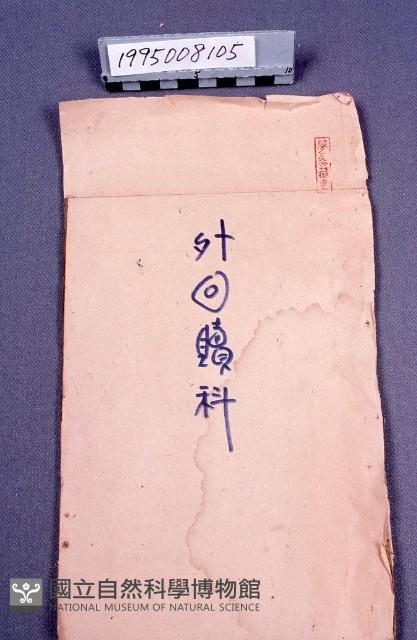 1995008105
10
外回贖科
國立自然科學博物館
NATIONAL MUSEUM OF NATURAL SCIENCE